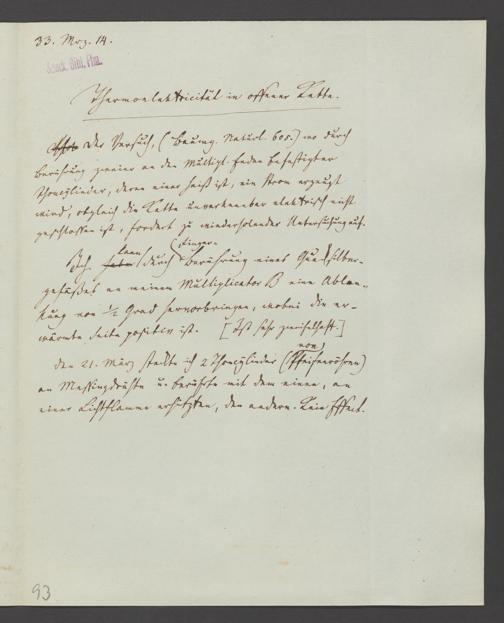 33. Mrz. 14.
Senck. Bibl. Ffm.
Thermoelektricität in offener Kette.
Der Versuch, (Baumg. Naturl. 605.) wo durch
Berührung zweier an den Multipl. Enden befestigter
Thoncylinder, deren einer heiß ist, ein Strom erzeugt
wird, obgleich die Kette unverkennbar elektrisch nicht
geschlossen ist, fordert zu wiederholender Untersuchung auf.
kann (Finger-
Ich durch Berührung eines Quecksilber-
gefäßes an meinem Multiplicator B eine Ablen-
kung von ½ Grad hervorbringen, wobei die er-
wärmte Seite positiv ist. [Ist sehr zweifelhaft.]
von
den 21. März steckte ich 2 Thoncylinder (Pfeifenröhren)
an Messingdrähte u. berührte mit dem einen, an
einer Lichtflamme erhitzten, den andern. Kein Effect.
93